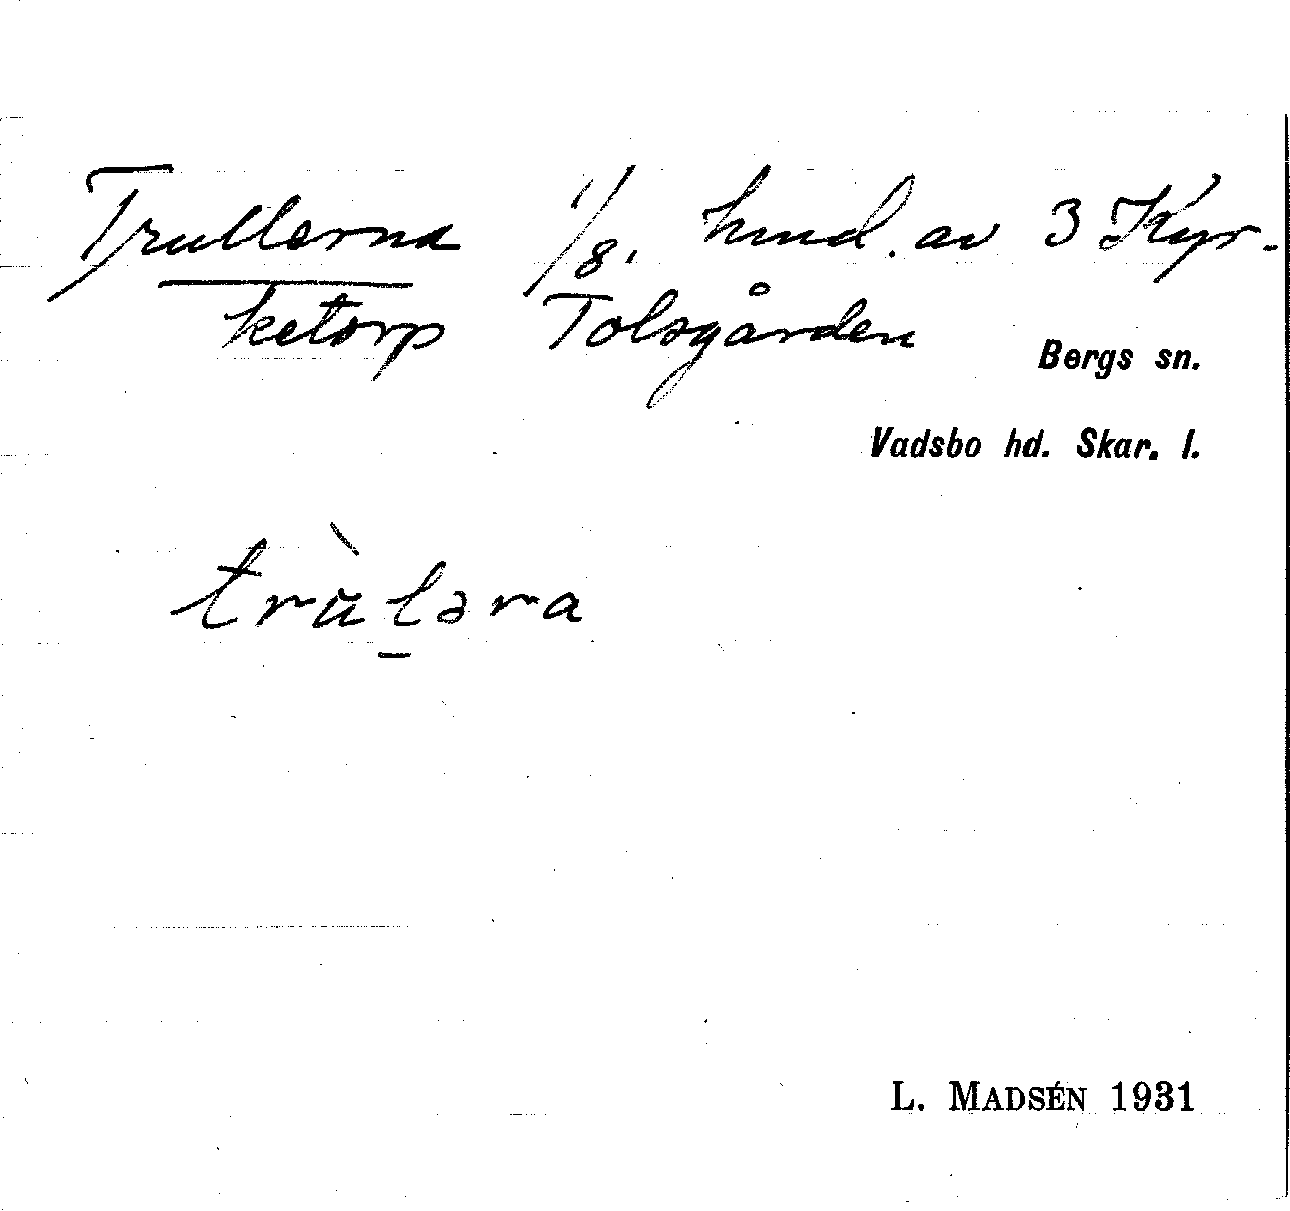 Trullerna 1/8. hmd. av 3 Kyr-
ketorp Tolsgården
Bergs sn.
Vadsbo hd. Skar. l.
trùlәra
L. MADSÉN 1931